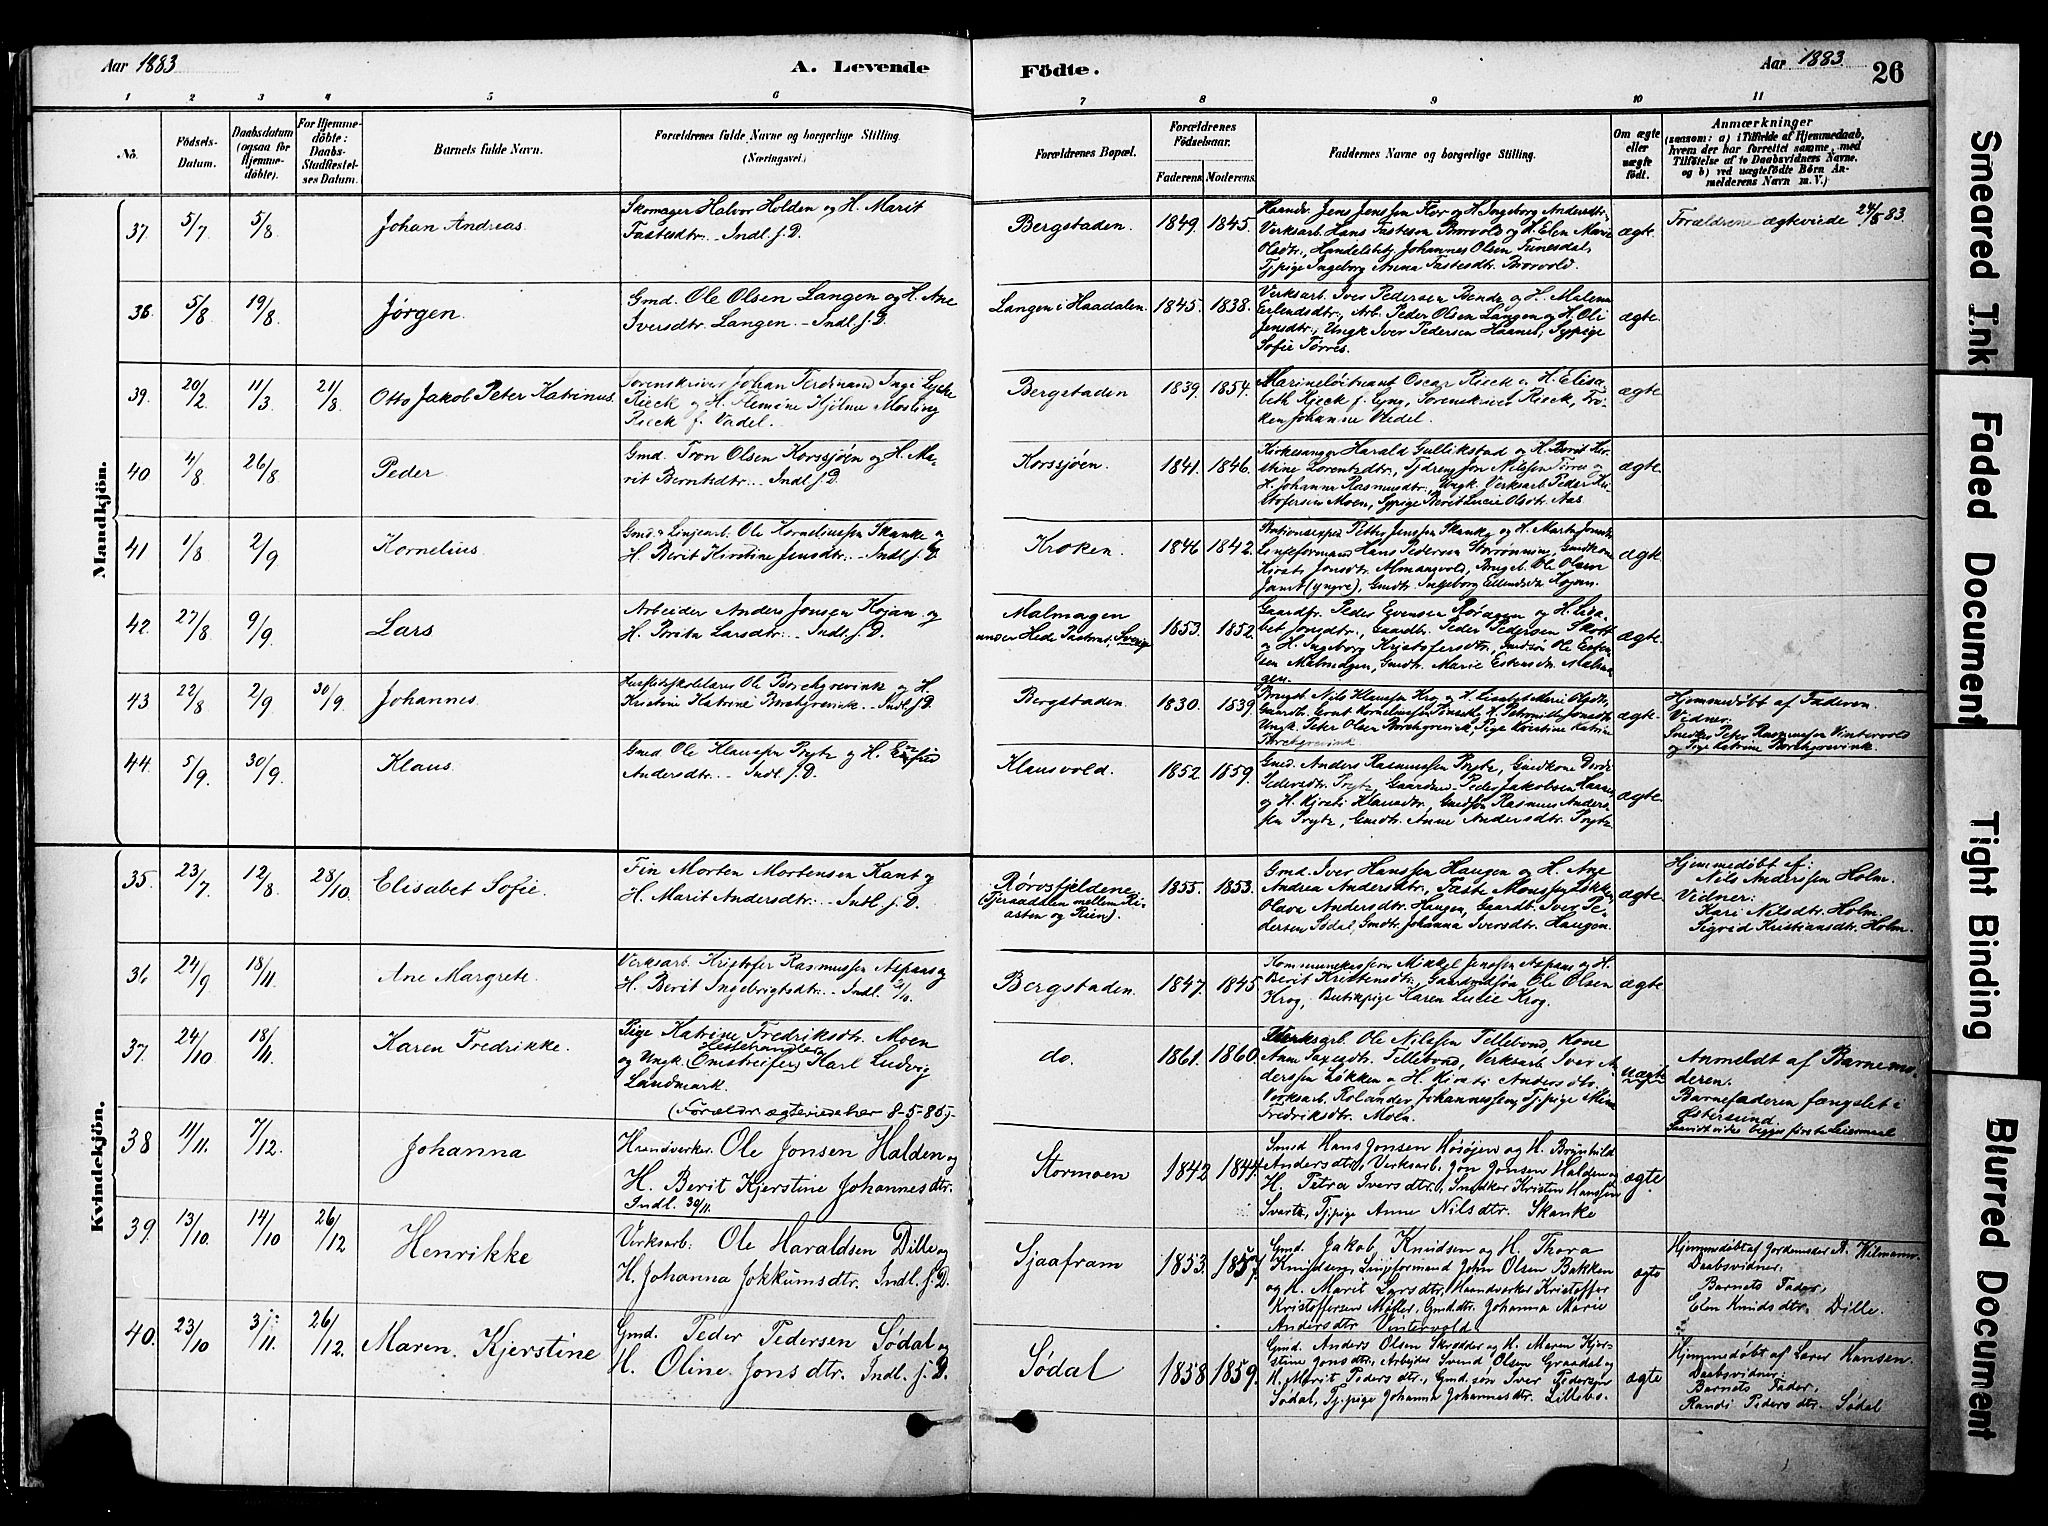 Aar 1883
A. Levende
Födte.
Aar 1883.
26
1 2 3 4 5 6 7 8 9 10 11
No.
Födsels-
Datum.
Daabsdatum
(ogsaa for
Hjemme-
döbte).
For Hjemme-
döbte:
Daabs-
Stadfæstel-
ses Datum.
Barnets fulde Navn.
Forældrenes fulde Navne og borgerlige Stilling.
(Næringsvei.)
Forældrenes Bopæl.
Forældrenes
Födselsaar.
Faderens. Moderens.
Faddernes Navne og borgerlige Stilling.
Om ægte
eller
uægte
födt.
Anmærkninger
(saasom: a) i Tilfælde af Hjemmedaab,
hvem der har forrettet samme, med
Tilföielse af to Daabsvidners Navne,
og b) ved uægtefödte Börn An-
melderens Navn m. V.)
Mandkjön.
37. 5/7 5/8 Johan Andreas.
Skomager Halvor Holden og H. Marit
Fastesdtr. – Indl. f. D.
Bergstaden. 1849. 1845.
Haandv. Jens Jenssen Kor og H. Ingeborg Andersdtr.
Verksarb. Hans Fastesen Borvold og H. Elen Marie
Olsdtr., Handelsbetj. Johannes Olsen Tunesdal,
Tjpige Ingeborg Anna Fastesdtr. Borvold.
ægte.
Forældrene ægteviede 24/8 83.
38. 5/8 19/8 Jørgen.
Gmd. Ole Olsen Langen og H. Ane
Iversdtr. Langen. – Indl. f. D.
Langen i Haadalen. 1845. 1838.
Verksarb. Iver Pedersen Bende og H. Malena
Erlendsdtr., Arb. Peder Olsen Langen og H. Oli
Jensdtr., Ungk. Iver Pedersen Haanes, Sypige
Sofie Tørres.
ægte.
39. 20/2 11/3 21/8 Otto Jakob Peter Katrinus.
Sorenskriver Johan Ferdinand Inge Lykke
Rieck og H. Flemine Hjelme Mosling
Rieck f. Vedel.
Bergstaden 1839. 1854.
Marineløitnant Oscar Rieck og H. Elisa-
beth Rieck f. Lyng, Sorenskriver Rieck, Frø-
ken Johanne Vedel.
ægte
40 4/8 26/8 Peder
Gmd. Tron Olsen Korssjøen og H. Ma-
rit Berntsdtr. – Indl. f. D.
Korssjøen. 1841. 1846.
Kirkesanger Harald Gullikstad og H. Berit Kir-
stine Lorentsdtr., Tjdreng Jon Nilssen Tørres og
H. Johanna Rasmusdtr., Ungk. Verksarb. Peder Kri-
stofersen Moen, Sypige Berit Lucie Olsdtr. Aas.
ægte.
41 1/8 2/9 Kornelius.
Gmd. & Linjearb. Ole Korneliussen Skanke og
H. Berit Kirstine Jensdtr. – Indl. f. D.
Kroken. 1846 1842.
Stationsexped. Petter Jenssen Skanke og H. Marta Jonsdtr.
Linjeformand Hans Pedersen Storrønning, Gmdkone
Kirsti Jonsdtr. Almangvold, Brugeb. Ole Olsen
Jamt (yngre), Gmdtr. Ingeborg Ellendsdtr. Kojan.
ægte.
42. 27/8 9/9 Lars
Arbeider Anders Jonsen Kojan og
H. Brita Larsdtr. – Indl. f. D.
Malmagen
under Hede Pastorat, Sverige
1853. 1852.
Gaardbr. Peder Evensen Røragen og H. Lisa-
bet Jonsdtr., Gaardbr. Peder Pedersen Skott
og H. Ingeborg Kristofersdtr., Gmdsøn Ole Esten-
sen Malmagen, Gmdtr. Marie Estensdtr. Malma-
gen.
ægte
43 22/8 2/9 30/9. Johannes.
Husflidsskolelærer Ole Borchgrevink og H.
Kristine Katrine Borchgrevink. – Indl. f. D.
Bergstaden. 1830. 1839
Brugsb. Nils Klaussen Krog og H. Lisabet Marie Olsdtr.
Ungk. Peter Olsen Borchgrevink, Pige Kristine Katrine
Borchgrevink
ægte.
Hjemmedøbt af Faderen.
Vidner:
Snedker Peter Rasmussen Vintervold
og Pige Katrine Borchgrevink.
44. 5/9. 30/9. Klaus.
Gmd. Ole Klaussen Prytz og H. Enfrid
Andersdtr. – Indl. f. D.
Klausvold. 1852. 1859.
Gmd. Anders Rasmussen Prytz, Gmdkone Dordi
Pedersdtr. Prytz, Gaardmd. Peder Jakobsen Haanes
og H. Kjersti Klausdtr., Gmdsøn Rasmus Anders-
sen Prytz, Gmdtr. Anne Andersdtr. Prytz
ægte.
Kvindekjön.
35. 23/7 12/8. 28/10. Elisabet Sofie.
Fin Morten Mortensen Kant og
H. Marit Andersdtr. – Indl. f. D.
Rørosfjeldene
(Tjeraadalen mellem Ri-
asten og Rien).
1855. 1853.
Gmd. Iver Hanssen Haugen og H. Ane
Andrea Andersdtr., Faste Monssen Løkken,
Olava Andersdtr. Haugen, Gaardb. Iver Pe-
dersen Sødal, Gmdtr. Johanna Iversdtr. Haugen.
ægte
Hjemmedøbt af:
Nils Anderssen Holm.
Vidner:
Kari Nilsdtr. Holm.
Sigrid Kristiansdtr. Holm.
36 24/9 18/11. Ane Margrete.
Verksarb. Kristofer Rasmussen Aspaas og
H. Berit Ingebrigtsdtr. – Indl. 21/11.
Bergstaden. 1847. 1845
Kommunekasserer Mikkel Jenssen Aspaas og H.
Berit Kristensdtr., Gaardmdsøn Ole Olsen
Krog, Butikpige Karen Lucie Krog.
ægte
37. 24/10 18/11. Karen Fredrikke.
Pige Katrine Fredriksdtr. Moen
og Ungk. (Omstreifer) Hestehandler Karl Ludvig
Landmark.
(Forældr. ægteviede her 8-5-86)
do. 1861. 1860.
Verksarb. Ole Nilssen Tellebond, Kone
Anne Saxesdtr. Tellebond, Verksarb. Iver An-
derssen Løkken og H. Kirsti Andersdtr.
Verksarb. Rolander Johannessen, Tjpige Mina
Fredriksdtr. Moen.
Uægte
Anmeldt af Barnemo-
deren.
Barnefaderen fængslet i
Østersund.
Saavidt vides begges første Leiermaal
38 11/11. 7/12. Johanna
Haandverker Ole Jonsen Halden og
H. Berit Kjerstine Johannesdtr.
Indl. 30/11.
Stormoen 1842 1844.
Smed Hans Jonsen Høsøjen og H. Brynhild
Andersdtr., Verksarb. Jon Jonsen Halden og
H. Petra Iversdtr., Snedker Kristen Hanssen
Svartz, Tjpige Anne Nilsdtr. Skanke
ægte.
39. 13/10. 14/10 26/12 Henrikke
Verksarb: Ole Haraldsen Dille og
H. Johanna Jokkumsdtr. Indl. f. D.
Sjaafram 1853. 1857.
Gmd. Jakob Knudsen og H. Thora
Knudsen, Linjeformand John Olsen Bakken
og H. Marit Larsdtr., Haandverker Kristoffer
Kristoffersen Møller, Gmd.dtr. Johanna Marie
Andersdtr. Vintervold
ægte
Hjemmedøbt af Jordemoder A. Wilmann.
Daabsvidner:
Barnets Fader,
Elen Knudsdtr. Dille.
40. 23/10 3/11. 26/12. Maren Kjerstine
Gmd. Peder Pedersen Sødal og
H. Oline Jonsdtr. Indl. f. D.
Sødal 1858 1859.
Gmd. Anders Olsen Skrødder og H. Maren Kjer-
stine Jonsdtr., Arbejder Svend Olsen Graadal og
H. Marit Pedersdtr., Gmd.søn Iver Pedersen
Sødal, Tj.pige Johanna Johannesdtr. Lillebo.
ægte
Hjemmedøbt af Lærer Hansen.
Daabsvidner:
Barnets Fader,
Randi Pedersdtr. Sødal
Smeared Ink
Faded Document
Tight Binding
Blurred Document